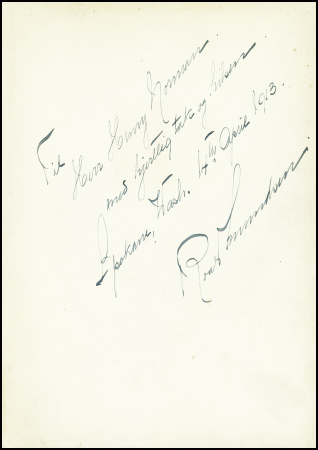 Til
Herr Henry Norman
med hjertlig tak og hilsen
Spokane, Wash. 4th April 1913.
Roald Amundsen.